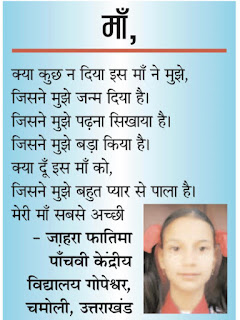 माँ,
क्या कुछ न दिया इस माँ ने मुझे,
जिसने मुझे जन्म दिया है।
जिसने मुझे पढ़ना सिखाया है।
जिसने मुझे बड़ा किया है।
क्या दूँ इस माँ को,
जिसने मुझे बहुत प्यार से पाला है।
मेरी माँ सबसे अच्छी
– ज़ाहरा फातिमा
पाँचवी केंद्रीय
विद्यालय गोपेश्वर,
चमोली, उत्तराखंड